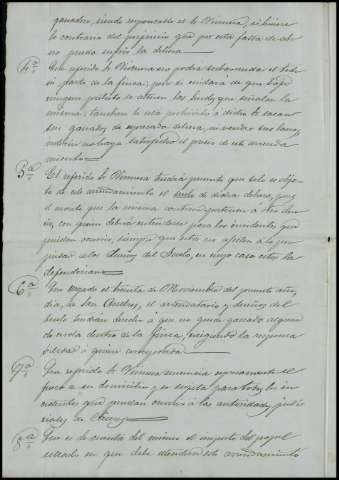 ganados, siendo responsable el de Viruera, si hiciere
lo contrario del perjuicio que por esta falta de abo
no pueda sufrir la dehesa
4ª Que referido Viruera no podrá subarrendar el todo
ni parte de la finca, que si cuidará de que bajo
ningun pretesto se alteren los lindes que señalan la
misma; tambien le está prohibido á dicho sacar
sus ganados de espresada dehesa, ni vender sus
sin haber satisfecho el precio de este arrenda
miento
5ª El referido Viruera tendrá presente que solo es obje-
to de este arrendamiento el suelo de dicha dehesa, pues
el monte que la misma contiene pertenece á otro due
ño, con quien deberá entenderse para los incidentes que
puedan ocurrir, siempre que esta no afecten a lo per
judicial á los dueños del Suelo, en cuyo caso estos la
defenderian
6ª Que llegado el treinta de Noviembre del presente año,
dia de San Andres, el arrendatario y dueños del
suelo tendran derecho á que no quede ganado alguno
de cerda dentro de la finca, exigiendo la responsa
bilidad á quien corresponda
7ª Que referido de Viruera renuncia espresamente el
fuero de su domicilio, y se sujeta para todos los in
cidentes que puedan ocurrir á las autoridades judi
ciales de
8ª Que es de cuenta del mismo el importe del papel
sellado en que debe estenderse este arrendamiento